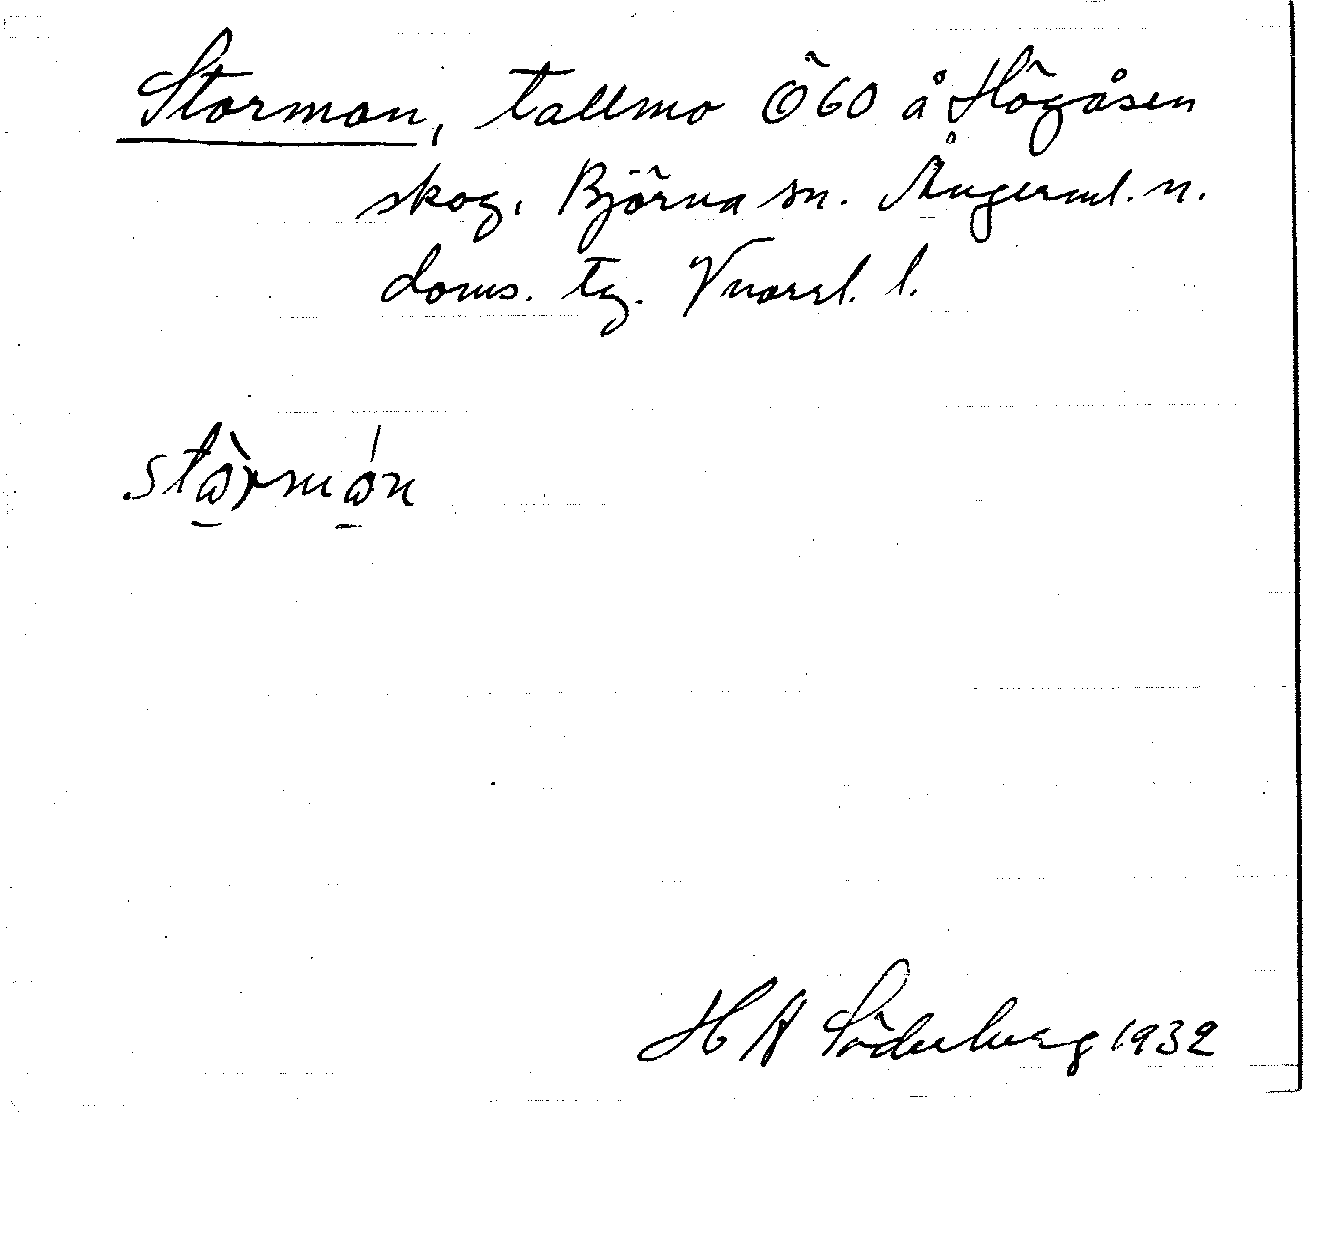 Stormon, tallmo Ö60 å Högåsen
skog. Björna sn. Ångerml. n.
doms. tg. Vnorrl. l.
stòrmón
H A Söderberg 1932